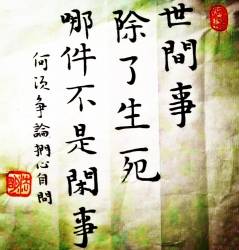 世間事
除了生死
哪件不是閑事
何須爭論捫心自問